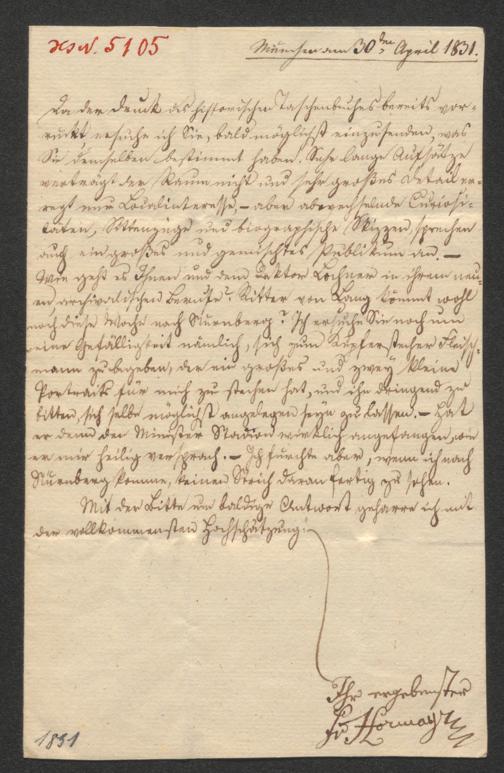 HsN. 5105
München am 30ten April 1831.
Da der Druck des historischen Taschenbuches bereits vor-
rückt ersuche ich Sie, bald möglichst einzusenden, was
Sie demselben bestimmt haben. Sehr lange Aufsätze
verträgt der Raum nicht und sehr großes Detail er-
regt nur Localinteresse, – aber abwechselnde Curiosi-
täten, Sittenzüge und biographische Skizzen, sprechen
auch ein großes und gemischtes Publikum an. –
Wie geht es Ihnen und dem Doktor Lochner in ihrem neu-
en, archivalischen Berufe? Ritter von Lang kömmt wohl
noch diese Woche nach Nürnberg? Ich ersuche Sie noch um
eine Gefälligkeit nämlich, sich zum Kupferstecher Fleisch-
mann zu begeben, der ein großes und zwey kleine
Portraits für mich zu stechen hat, und ihn dringend zu
bitten, sich selbe möglichst angelegen seyn zu lassen. – Hat
er denn den Minister Stadion wirklich angefangen, wie
er mir heilig versprach. – Ich fürchte aber, wenn ich nach
Nürnberg komme, keinen Strich daran fertig zu sehen.
Mit der Bitte um baldige Antwort geharre ich mit
der vollkommensten Hochschätzung:
Ihr ergebenster
Hormayr
1831